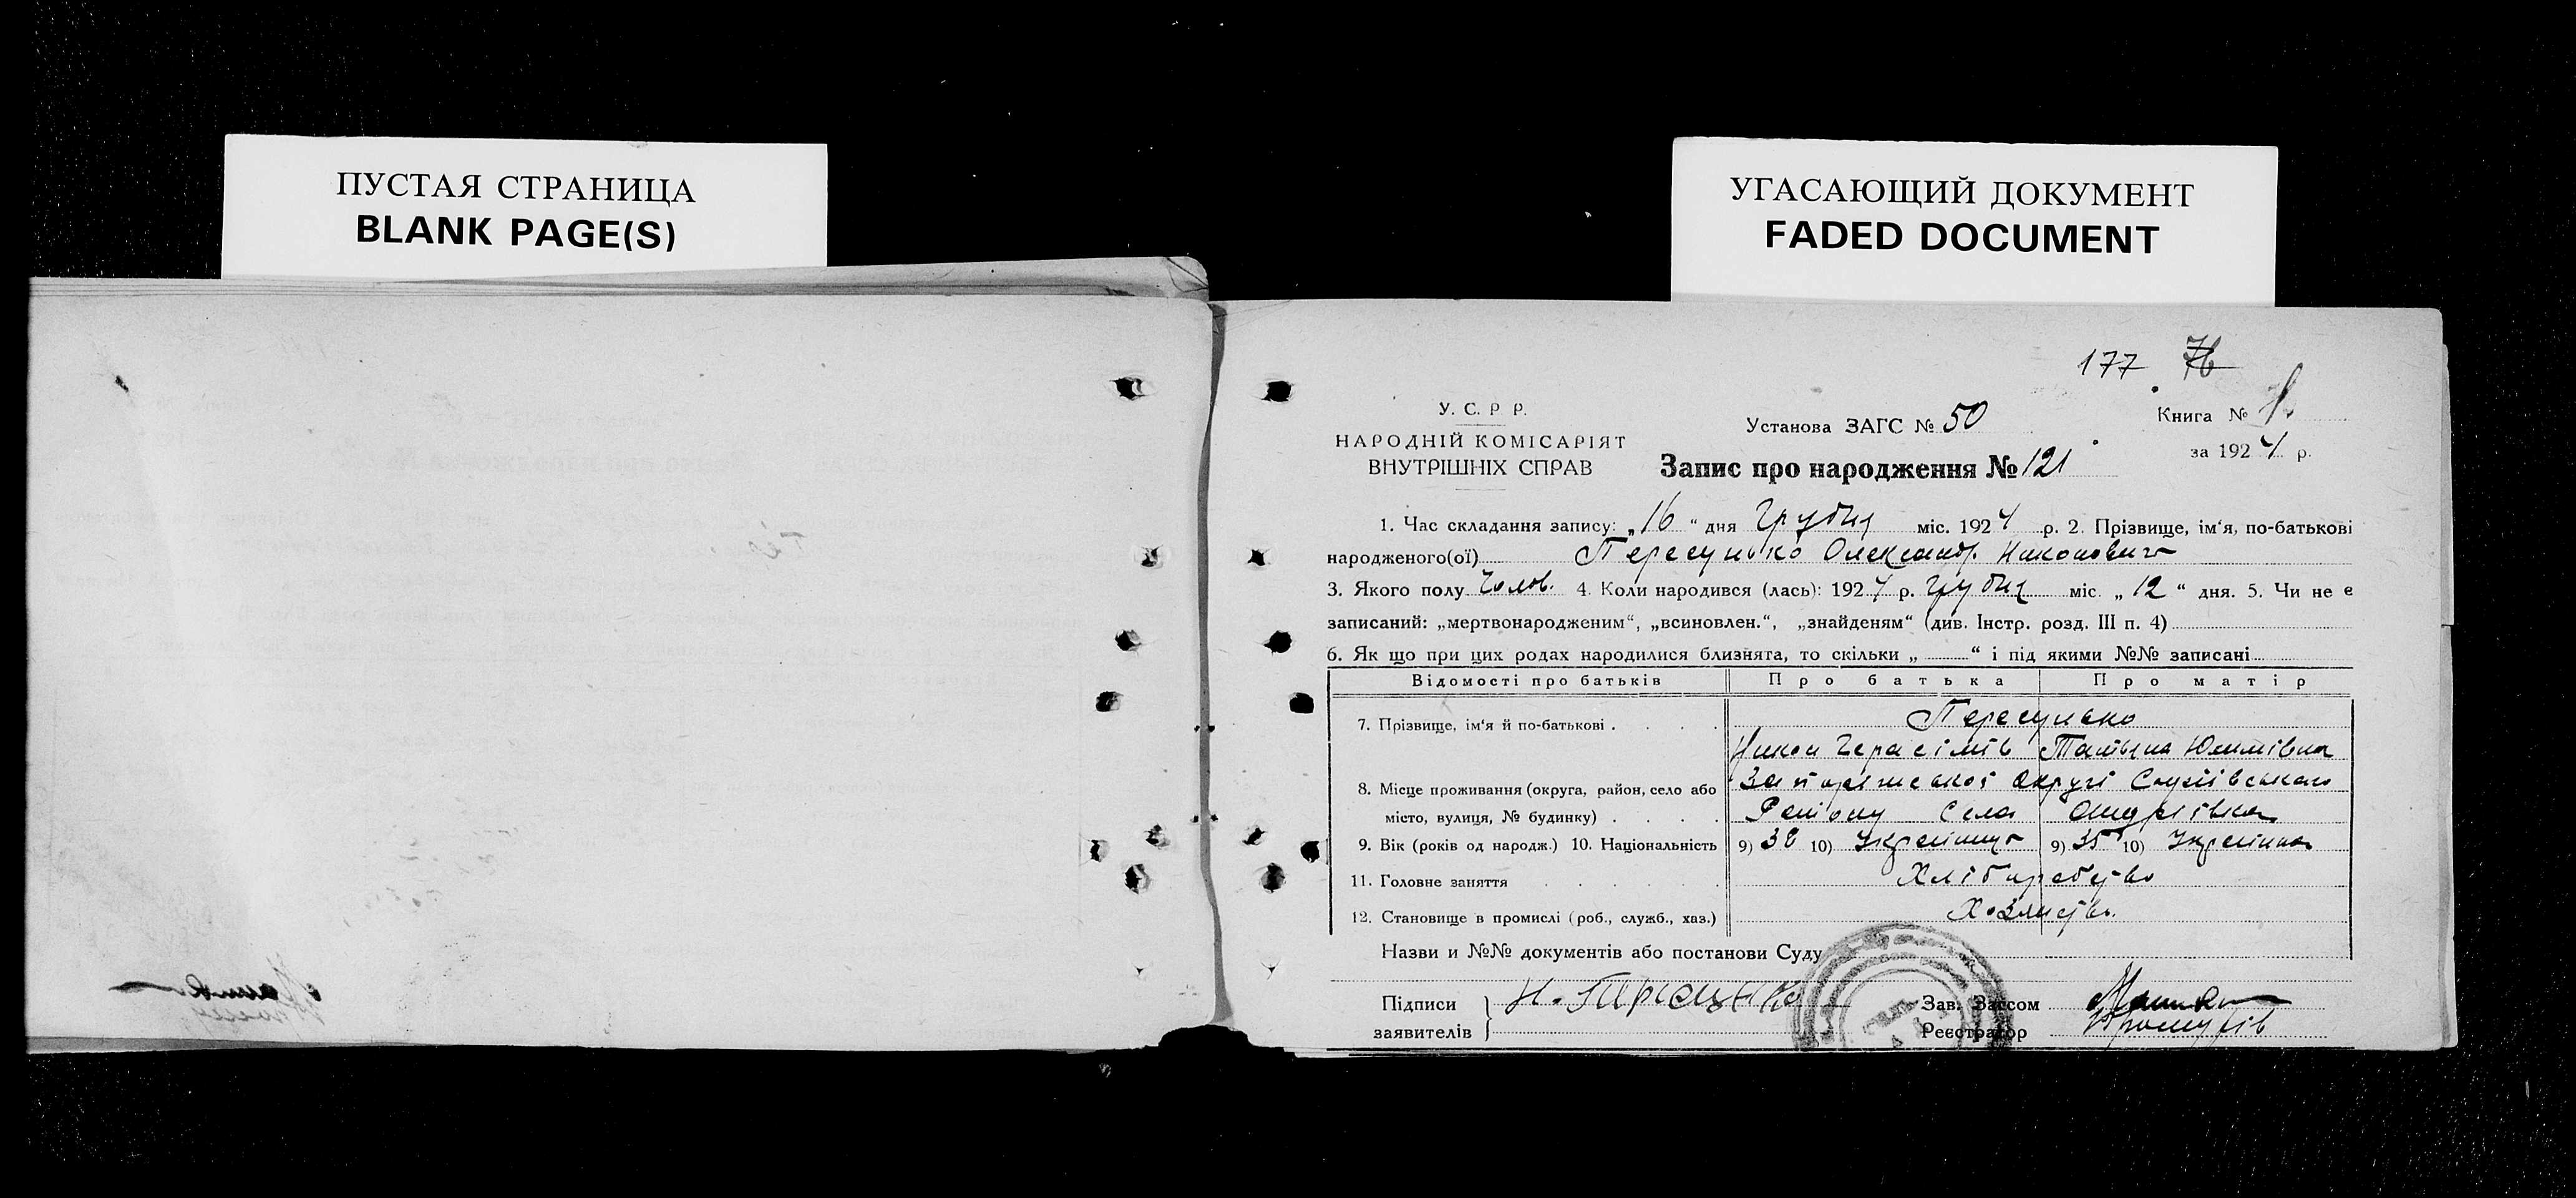 ПУСТАЯ СТРАНИЦА
BLANK PAGE(S)
УГАСАЮЩИЙ ДОКУМЕНТ
FADED DOCUMENT
177 76
У. С. Р. Р.
НАРОДНІЙ КОМІСАРІЯТ
ВНУТРІШНІХ СПРАВ
Установа ЗАГС № 50
Книга № 1.
за 1924 р.
Запис про народження № 121
1. Час складання запису: „16“ дня Грудня міс. 1924 р. 2. Прізвище, ім‘я, по-батькові
народженого(ої) Пересунько Олександр Никонович
3. Якого полу Чолов. 4. Коли народився (лась): 1924 р. Грудня міс. „12“ дня. 5. Чи не є
записаний: „мертвонародженим“, „всиновлен.“, „знайденям“ (див. Інстр. розд. III п. 4)
6. Як що при цих родах народилися близнята, то скільки „ “ і під якими №№ записані
Відомості про батьків Про батька Про матір
7. Прізвище, ім‘я й по-батькові . . . . Пересунько
Никон Герасімів Татьяна Юхимівна
8. Місце проживання (округа, район, село або Запоріжської Округі
місто, вулиця, № будинку) . . . . Району Села Андріівка
9. Вік (років од народж.) 10. Національність 9) 38 10) Українець 9) 35 10) Українка
11. Головне заняття . . . . . . Хліборобство
12. Становище в промислі (роб., служб., хаз.) Хозяйство
Назви и №№ документів або постанови Суду
Підписи
заявителів
Н.
Зав. Загсом
Реєстратор